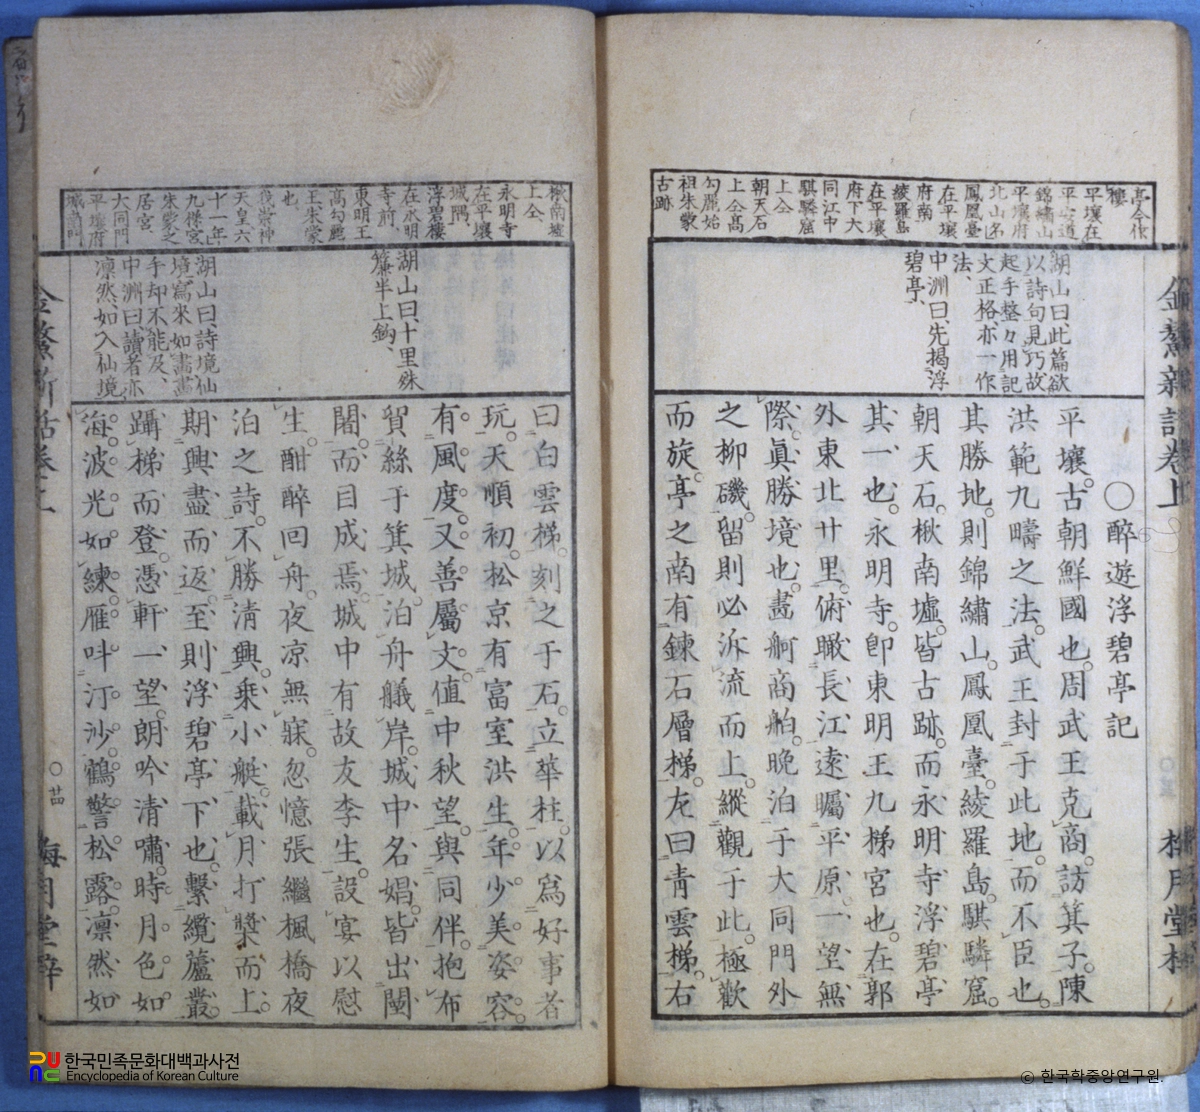 金鰲新話卷上
○醉遊浮碧亭記
平壤古朝鮮國也周武王克商訪箕子陳
洪範九疇之法武王封于此地而不臣也
其勝地則錦繡山鳳凰臺綾羅島騏驎窟
朝天石楸南墟皆古跡而永明寺浮碧亭
其一也永明寺卽東明王九梯宮也在郭
外東北廿里俯瞰長江遠矚平原一望無
際眞勝境也畫舸商舶晚泊于大同門外
之柳磯留則必泝流而上縱觀于此極歡
而旋亭之南有鍊石層梯左曰靑雲梯右
亭今作
樓
平壤在
平安道
錦繡山
平壤府
北山名
鳳凰臺
在平壤
府南
綾羅島
在平壤
府下大
同江中
騏驎窟
上仝
朝天石
上仝高
勾麗始
祖朱蒙
古跡
湖山曰此篇欲
以詩句見巧故
起手整々用記
文正格亦一作
法、
中洲曰先揭浮
碧亭、
曰白雲梯刻之于石立華柱以爲好事者
玩天順初松京有富室洪生年少美姿容
有風度又善屬文値中秋望與同伴抱布
貿絲于箕城泊舟艤岸城中名娼皆出闉
闍而目成焉城中有故友李生設宴以慰
生酣醉回舟夜凉無寐忽憶張繼楓橋夜
泊之詩不勝淸興乘小艇載月打槳而上
期興盡而返至則浮碧亭下也繫纜蘆叢
躡梯而登憑軒一望朗吟淸嘯時月色如
海波光如練雁呌汀沙鶴警松露凛然如
楸南墟
上仝、
永明寺
在平壤
城隅、
浮碧樓
在永明
寺前、
東明王
高勾麗
王朱蒙
也
天皇六
十一年
九梯宮
朱蒙之
居宮
大同門
平壤府
城
門
湖山曰十里殊
簾半上鈎、
湖山曰詩境仙
境寫來如畫畫
手却不能及、
中洲曰讀者亦
凛然、如入仙境
金鰲新話卷上
○廿
梅月堂
한국민족문화대백과사전
Encyclopedia of Korean Culture
© 한국학중앙연구원.